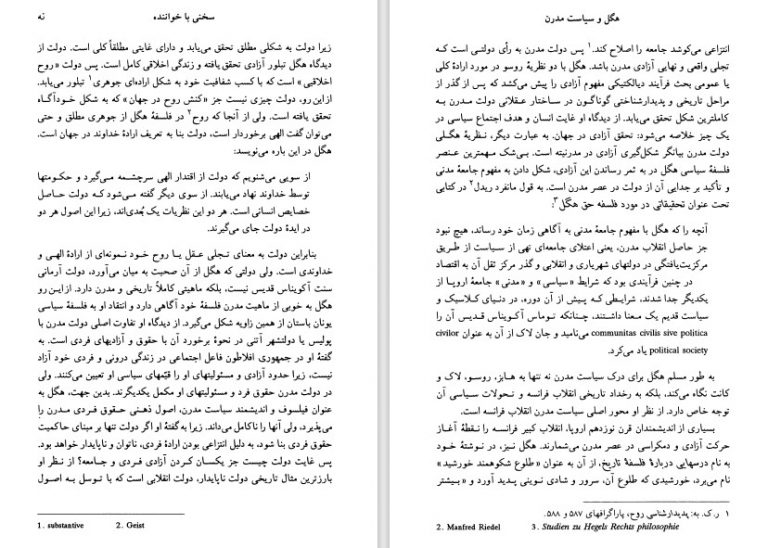 هگل و سیاست مدرن
انتزاعی می‌کوشد جامعه را اصلاح کند.۱ پس دولت مدرن به رأی دولتی است که
تجلی واقعی و نهایی آزادی مدرن باشد. هگل با دو نظریهٔ روسو در مورد ارادهٔ کلی
یا عمومی بحث فرآیند دیالکتیکی مفهوم آزادی را پیش می‌کشد که پس از گذر از
مراحل تاریخی و پدیدارشناختی گوناگون در ساختار عقلانی دولت مدرن به
کاملترین شکل تحقق می‌یابد. از دیدگاه او غایت انسان و هدف اجتماع سیاسی در
یک چیز خلاصه می‌شود: تحقق آزادی در جهان. به عبارت دیگر، نظریهٔ هگلی
دولت مدرن بیانگر شکل‌گیری آزادی در مدرنیته است. بی‌شک مهمترین عنصر
فلسفهٔ سیاسی هگل در به ثمر رساندن این آزادی، شکل دادن به مفهوم جامعهٔ مدنی
و تأکید بر جدایی آن از دولت در عصر مدرن است. به قول مانفرد ریدل۲ در کتابی
تحت عنوان تحقیقاتی در مورد فلسفه حق هگل۳:
آنچه را که هگل با مفهوم جامعهٔ مدنی به آگاهی زمان خود رساند، هیچ نبود
جز حاصل انقلاب مدرن، یعنی اعتلای جامعه‌ای نهی از سیاست از طریق
مرکزیت‌یافتگی در دولتهای شهریاری و انقلابی و گذر مرکز ثقل آن به اقتصاد
در چنین فرآیندی بود که شرایط «سیاسی» و «مدنی» جامعهٔ اروپا از
یکدیگر جدا شدند، شرایطی که پیش از آن دوره، در دنیای کلاسیک و
سیاست قدیم یک معنا داشتند، چنانکه توماس آکویناس قدیس آن را
communitas civilis sive politica می‌نامید و جان لاک از آن به عنوان civilor
political society یاد می‌کرد.
به طور مسلم هگل برای درک سیاست مدرن نه تنها به هابز، روسو، لاک و
کانت نگاه می‌کند، بلکه به رخداد تاریخی انقلاب فرانسه و تحولات سیاسی آن
توجه خاص دارد. از نظر او محور اصلی سیاست مدرن انقلاب فرانسه است.
بسیاری از اندیشمندان قرن نوزدهم اروپا، انقلاب کبیر فرانسه را نقطهٔ آغاز
حرکت آزادی و دمکراسی در عصر مدرن می‌شمارند. هگل نیز، در نوشتهٔ خود
به نام درسهایی دربارهٔ فلسفهٔ تاریخ، از آن به عنوان «طلوع شکوهمند خورشید»
نام می‌برد، خورشیدی که طلوع آن، سرور و شادی نوینی پدید آورد و «بیشتر
۱ ر.ک. به: پدیدارشناسی روح، پاراگرافهای ۵۸۷ و ۵۸۸.
2. Manfred Riedel 3. Studien zu Hegels Rechts philosophie
سخنی با خواننده
نه
زیرا دولت به شکلی مطلق تحقق می‌یابد و دارای غایتی مطلقاً کلی است. دولت از
دیدگاه هگل تبلور آزادی تحقق یافته و زندگی اخلاقی کامل است. پس دولت «روح
اخلاقیی» است که با کسب شفافیت خود به شکل اراده‌ای جوهری۱ تبلور می‌یابد.
ازاین‌رو، دولت چیزی نیست جز «کنش روح در جهان» که به شکل خودآگاه
تحقق یافته است. ولی از آنجا که روح۲ در فلسفهٔ هگل از جوهری مطلق و حتی
می‌توان گفت الهی برخوردار است، دولت بنا به تعریف ارادهٔ خداوند در جهان است.
هگل در این باره می‌نویسد:
از سویی می‌شنویم که دولت از اقتدار الهی سرچشمه می‌گیرد و حکومتها
توسط خداوند نهاد می‌یابند. از سوی دیگر گفته می‌شود که دولت حاصل
خصایص انسانی است. هر دو این نظریات یک بُعدی‌اند، زیرا این اصول هر دو
در ایدهٔ دولت جای می‌گیرند.
بنابراین دولت به معنای تجلی عقل یا روح خود نمونه‌ای از ارادهٔ الهی و
خداوندی است. ولی دولتی که هگل از آن صحبت به میان می‌آورد، دولت آرمانی
سنت آکویناس قدیس نیست، بلکه ماهیتی کاملاً تاریخی و مدرن دارد. ازاین‌رو
هگل به خوبی از ماهیت مدرن فلسفهٔ خود آگاهی دارد و انتقاد او به فلسفهٔ سیاسی
یونان باستان از همین زاویه شکل می‌گیرد. از دیدگاه او تفاوت اصلی دولت مدرن با
پولیس یا دولتشهر آتنی در نحوهٔ برخورد آن با حقوق و آزادیهای فردی است. به
گفتهٔ او در جمهوری افلاطون فاعل اجتماعی در زندگی درونی و فردی خود آزاد
نیست، زیرا حدود آزادی و مسئولیتهای او را قیّمهای سیاسی او تعیین می‌کنند. ولی
در دولت مدرن حقوق فرد و مسئولیتهای او مکمل یکدیگرند. بدین جهت، هگل به
عنوان فیلسوف و اندیشمند سیاست مدرن، اصول ذهنی حقوق فردی مدرن را
می‌پذیرد، ولی آنها را ناکامل می‌داند. زیرا به گفتهٔ او اگر دولت تنها بر مبنای حاکمیت
حقوق فردی بنا شود، به دلیل انتزاعی بودن ارادهٔ فردی، ناتوان و ناپایدار خواهد بود.
پس غایت دولت چیست جز یکسان کردن آزادی فردی و جامعه؟ از نظر او
بارزترین مثال تاریخی دولت ناپایدار، دولت انقلابی است که با توسل به اصول
1. substantive 2. Geist